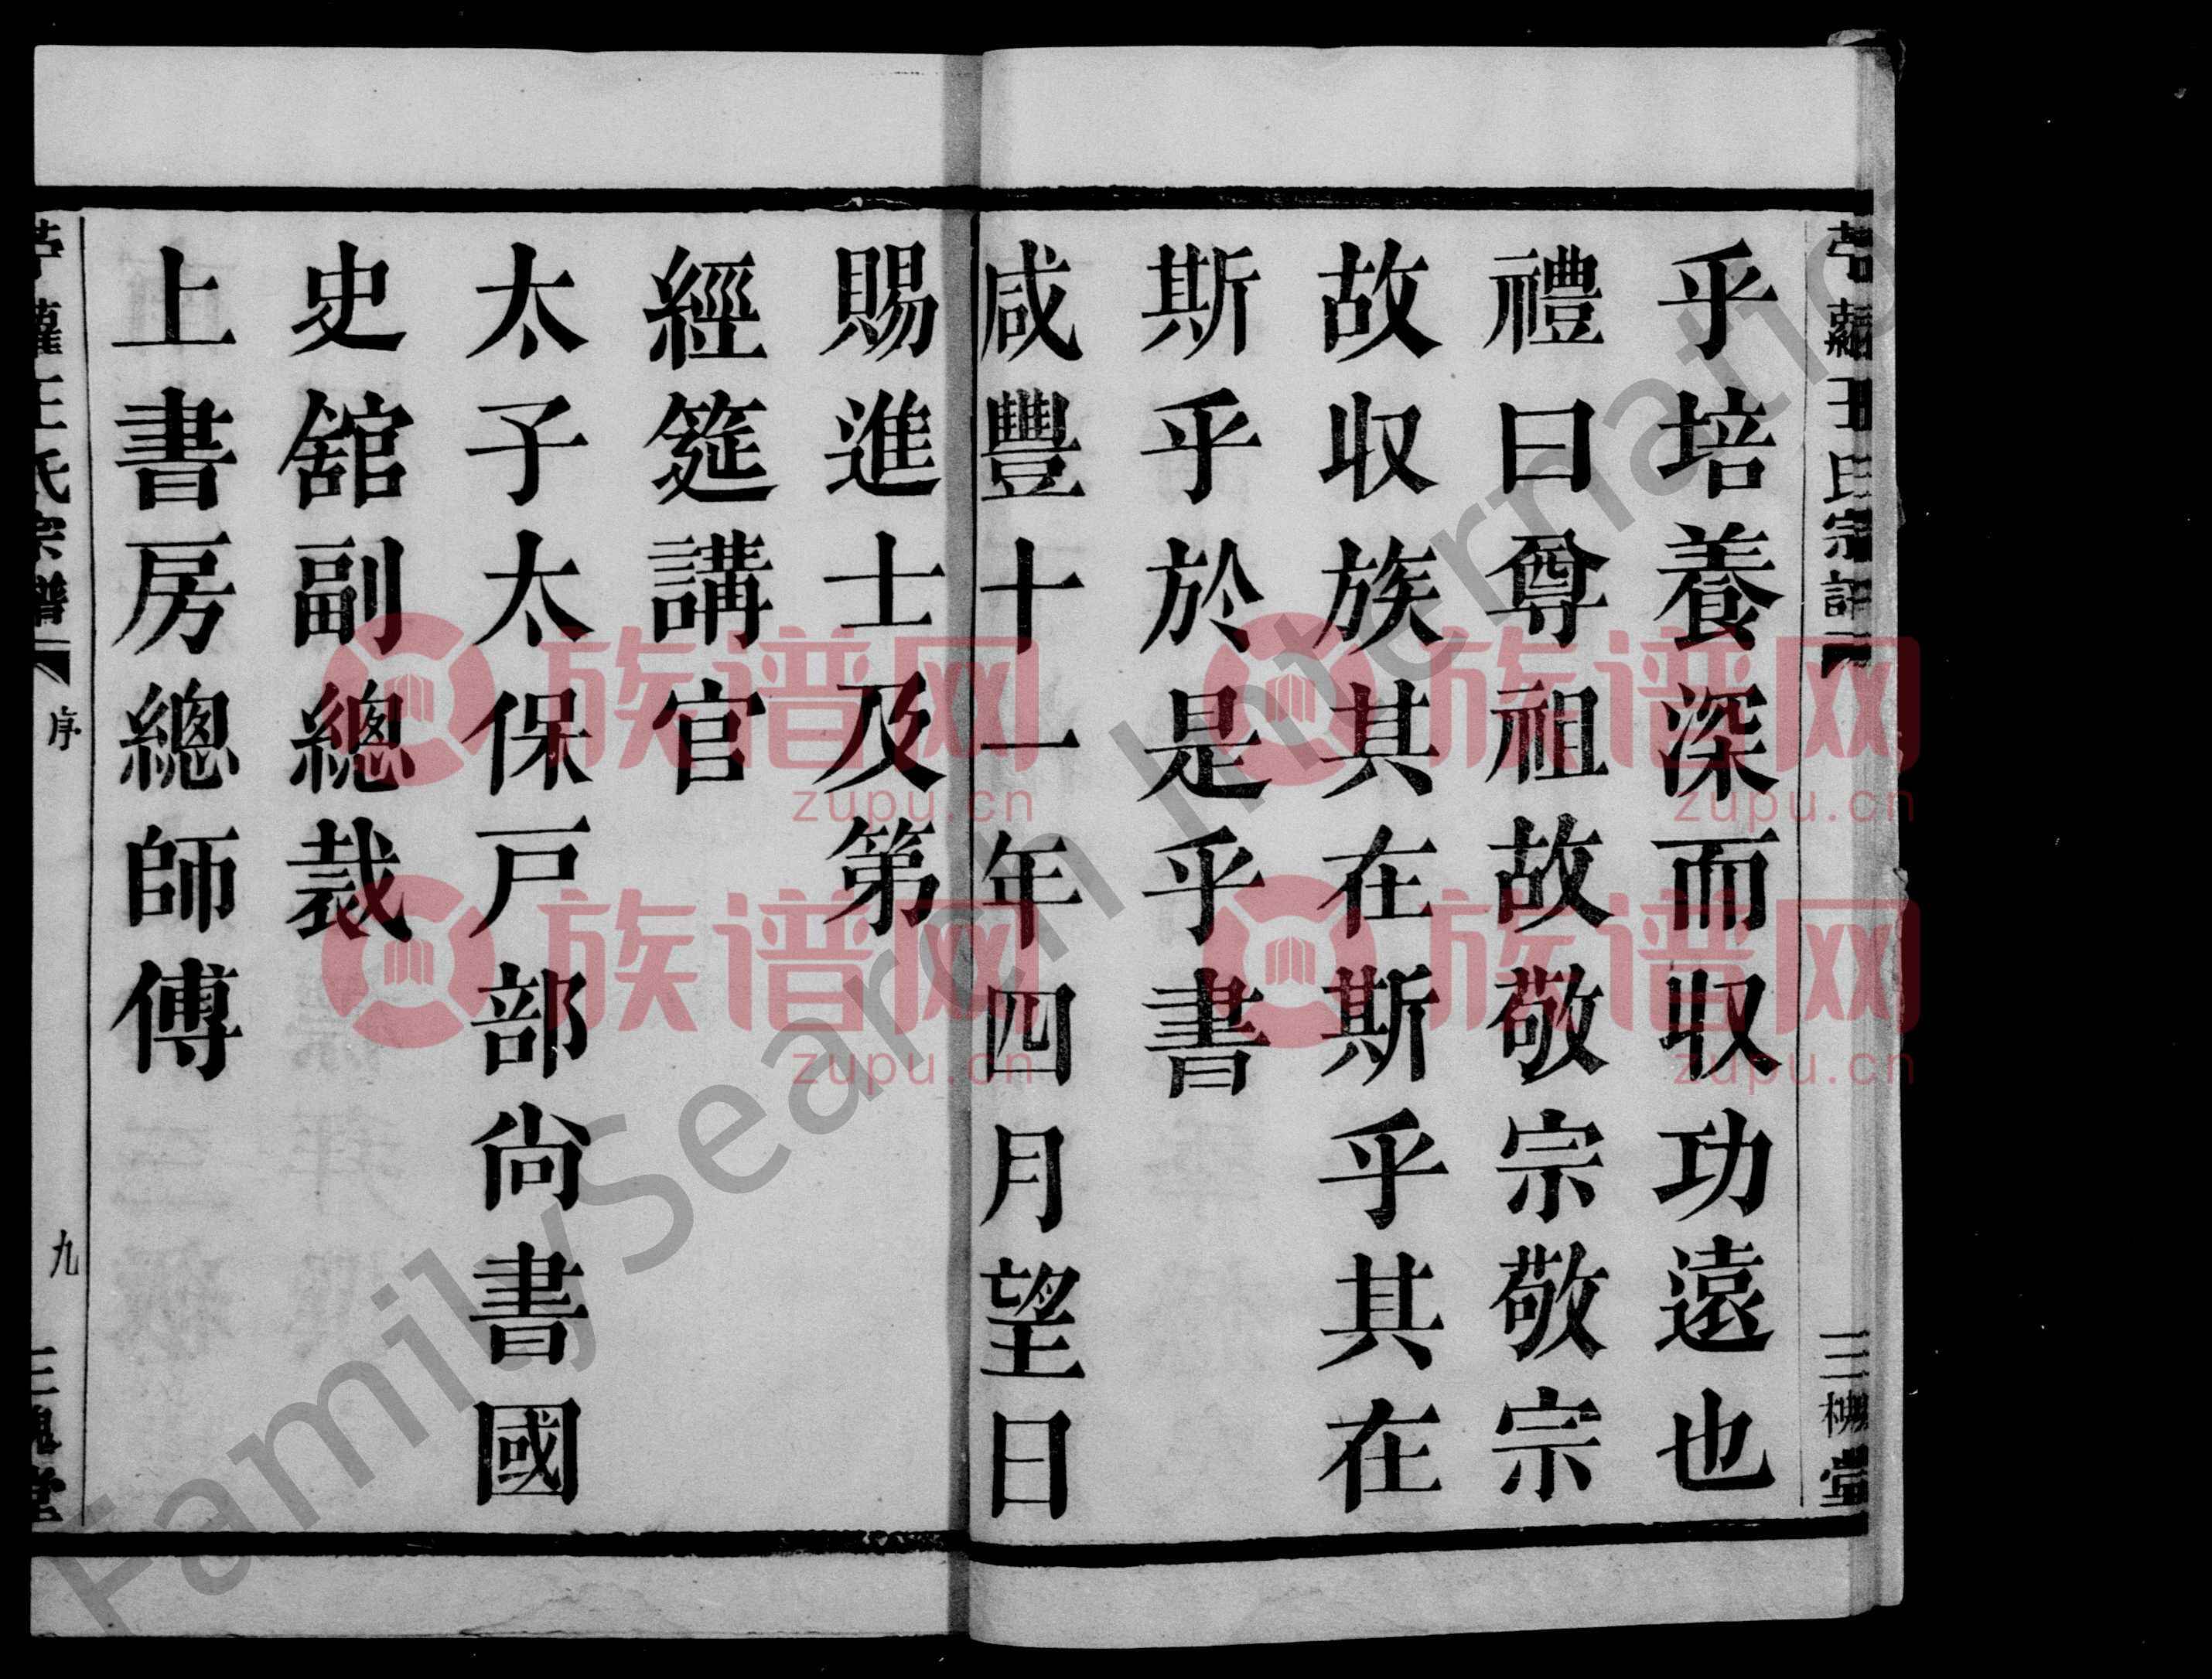 乎培養深而収功遠也
禮曰尊祖故敬宗敬宗
故収族其在斯乎其在
斯乎於是乎書
咸豐十一年四月望日
賜進士及第
經筵講官
太子太保戸部尙書國
史舘副總裁
上書房總師傅
苧蘿王氏宗譜
序
九
三槐堂
族谱网
zupu.cn
族谱网
zupu.cn
族谱网
zupu.cn
族谱网
zupu.cn
FamilySearch Internatio